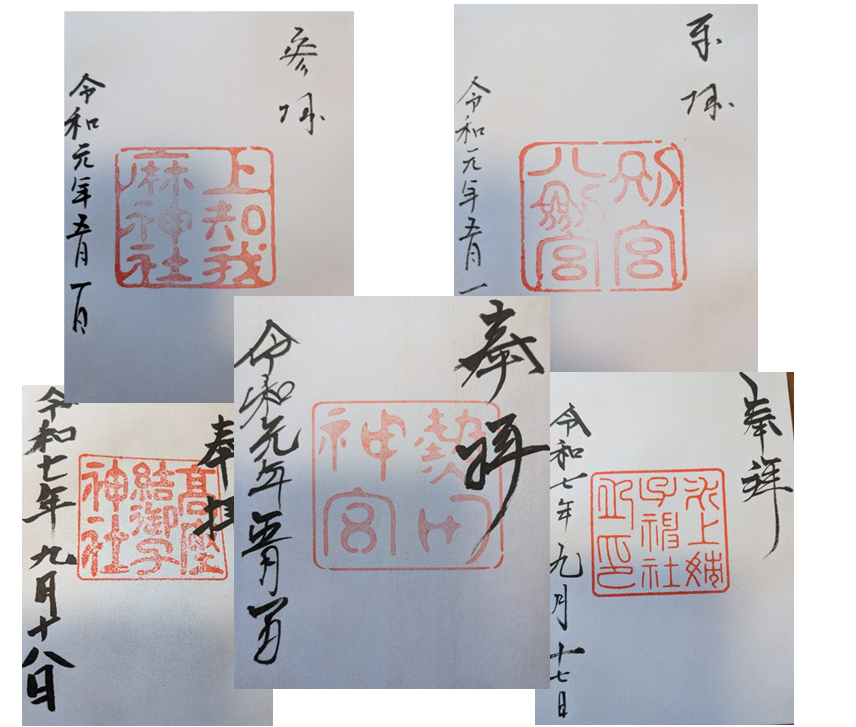 参拝
上知我
麻神社
令和元年五月一日
拝
別宮
八剱宮
令和元年五月一
奉拝
熱田
神宮
令和元年五月
奉拝
髙座
結御子
神社
令和七年九月十八日
奉拝
氷上姉
子神社
之印
令和七年九月十七日